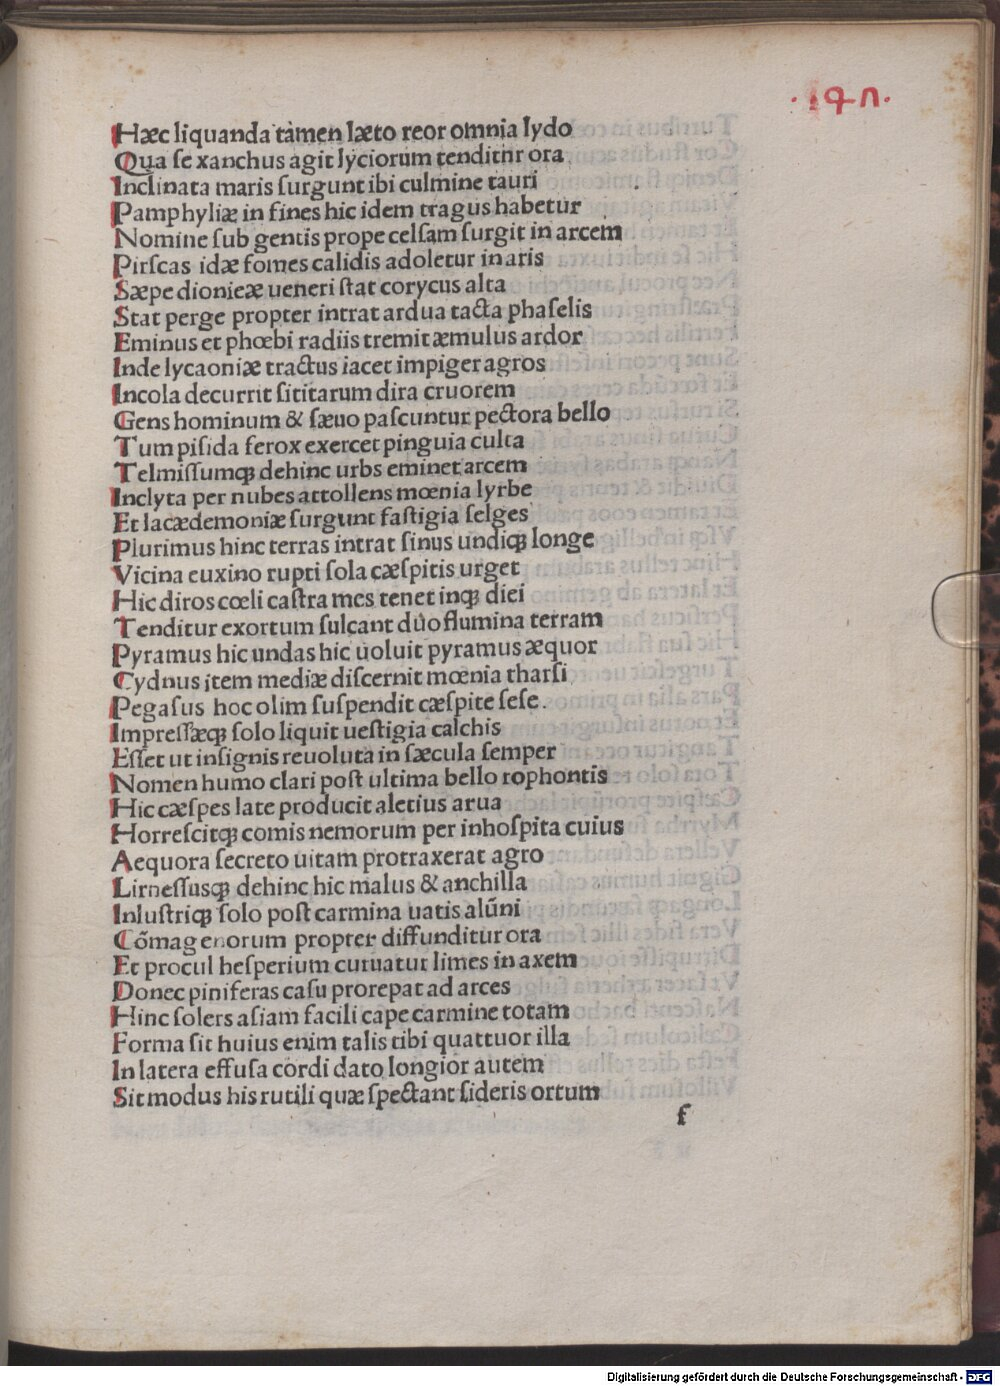 ·147·
Hæc liquanda tamen læto reor omnia lydo
Qua se xanchus agit lyciorum tenditnr ora
Inclinata maris surgunt ibi culmine tauri
Pamphyliæ in fines hic idem tragus habetur
Nomine sub gentis prope celsam surgit in arcem
Pirscas idæ fomes calidis adoletur in aris
Sæpe dionieæ ueneri stat corycus alta
Stat perge propter intrat ardua tacta phaselis
Eminus et phœbi radiis tremit æmulus ardor
Inde lycaoniæ tractus iacet impiger agros
Incola decurrit sititarum dira cruorem
Gens hominum & sæuo pascuntur pectora bello
Tum pisida ferox exercet pinguia culta
Telmissumqꝫ dehinc urbs eminet arcem
Inclyta per nubes attollens mœnia lyrbe
Et lacædemoniæ surgunt fastigia selges
Plurimus hinc terras intrat sinus undiqꝫ longe
Vicina euxino rupti sola cæspitis urget
Hic diros cœli castra mes tenet inqꝫ diei
Tenditur exortum sulcant duo flumina terram
Pyramus hic undas hic uoluit pyramus æquor
Cydnus item mediæ discernit mœnia tharsi
Pegasus hoc olim suspendit cæspite sese.
Impressæqꝫ solo liquit uestigia calchis
Esset ut insignis reuoluta in sæcula semper
Nomen humo clari post ultima bello rophontis
Hic cæspes late producit aletius arua
Horrescitqꝫ comis nemorum per inhospita cuius
Aequora secreto uitam protraxerat agro
Lirnessusqꝫ dehinc hic malus & anchilla
Inlustriqꝫ solo post carmina uatis alũni
Cõmagenorum propter diffunditur ora
Et procul hesperium curuatur limes in axem
Donec piniferas casu prorepat ad arces
Hinc solers asiam facili cape carmine totam
Forma sit huius enim talis tibi quattuor illa
In latera effusa cordi dato longior autem
Sit modus his rutili quæ spectant sideris ortum
f
Digitalisierung gefördert durch die Deutsche Forschungsgemeinschaft - DFG